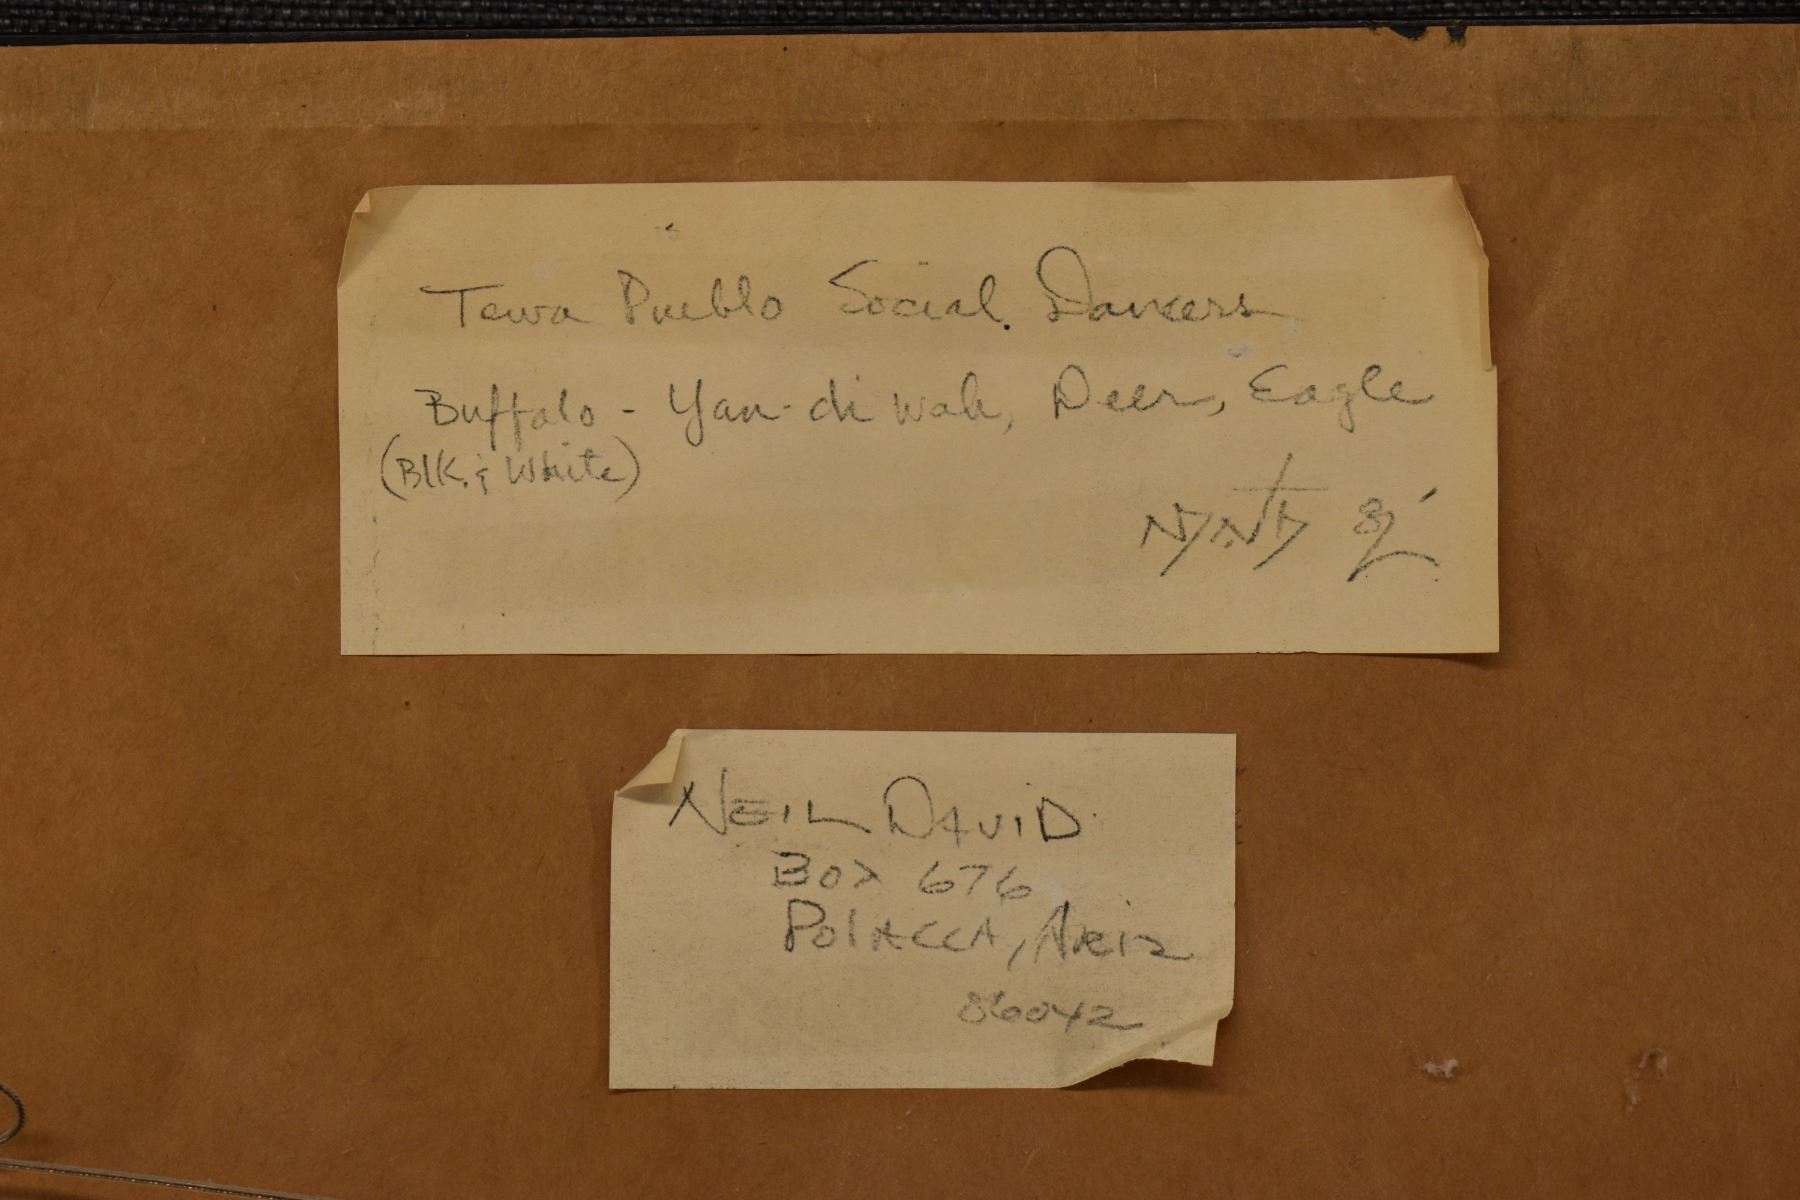 Tewa Pueblo Social Dancers
Buffalo - Yan-di wah, Deer, Eagle
(Blk. & White)
NEIL DAVID
BOX 676
POLACCA, ARIZ
86042